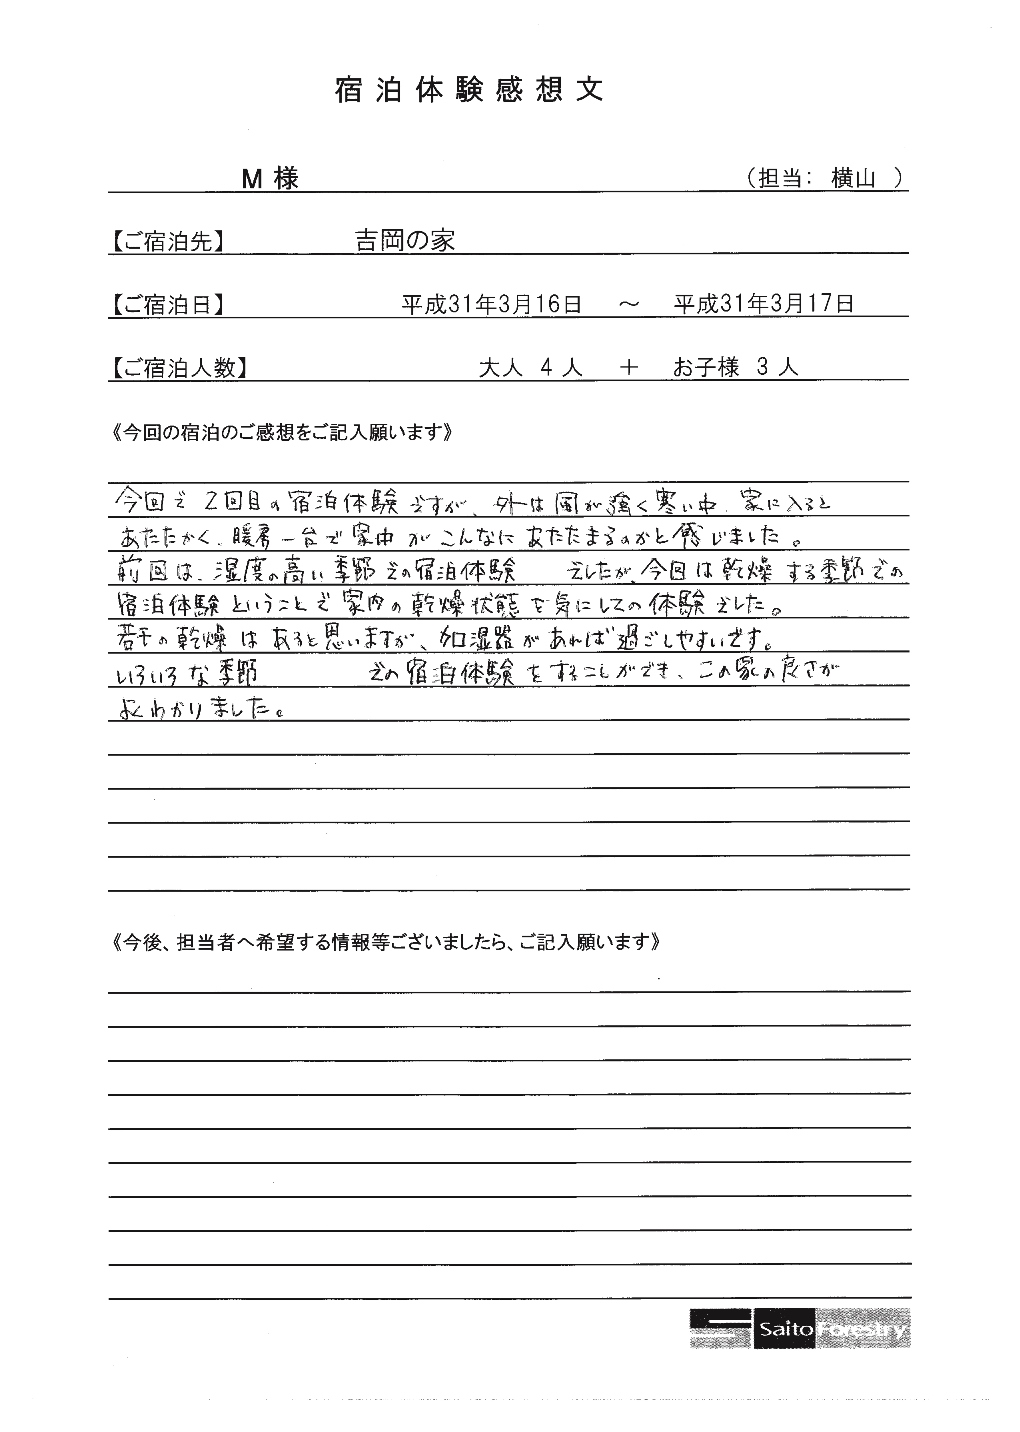 宿泊体験感想文
M 様 （担当： 横山 ）
【ご宿泊先】 吉岡の家
【ご宿泊日】 平成31年3月16日 ～ 平成31年3月17日
【ご宿泊人数】 大人 4 人 ＋ お子様 3 人
《今回の宿泊のご感想をご記入願います》
今回で2回目の宿泊体験ですが、外は風が強く寒い中、家に入ると
あたたかく、暖房一台で家中がこんなにあたたまるのかと感じました。
前回は、湿度の高い季節での宿泊体験 でしたが、今回は乾燥する季節での
宿泊体験ということで家内の乾燥状態を気にしての体験でした。
若干の乾燥はあると思いますが、加湿器があれば過ごしやすいです。
いろいろな季節 での宿泊体験をすることができ、この家の良さが
よくわかりました。
《今後、担当者へ希望する情報等ございましたら、ご記入願います》
Saito Forestry